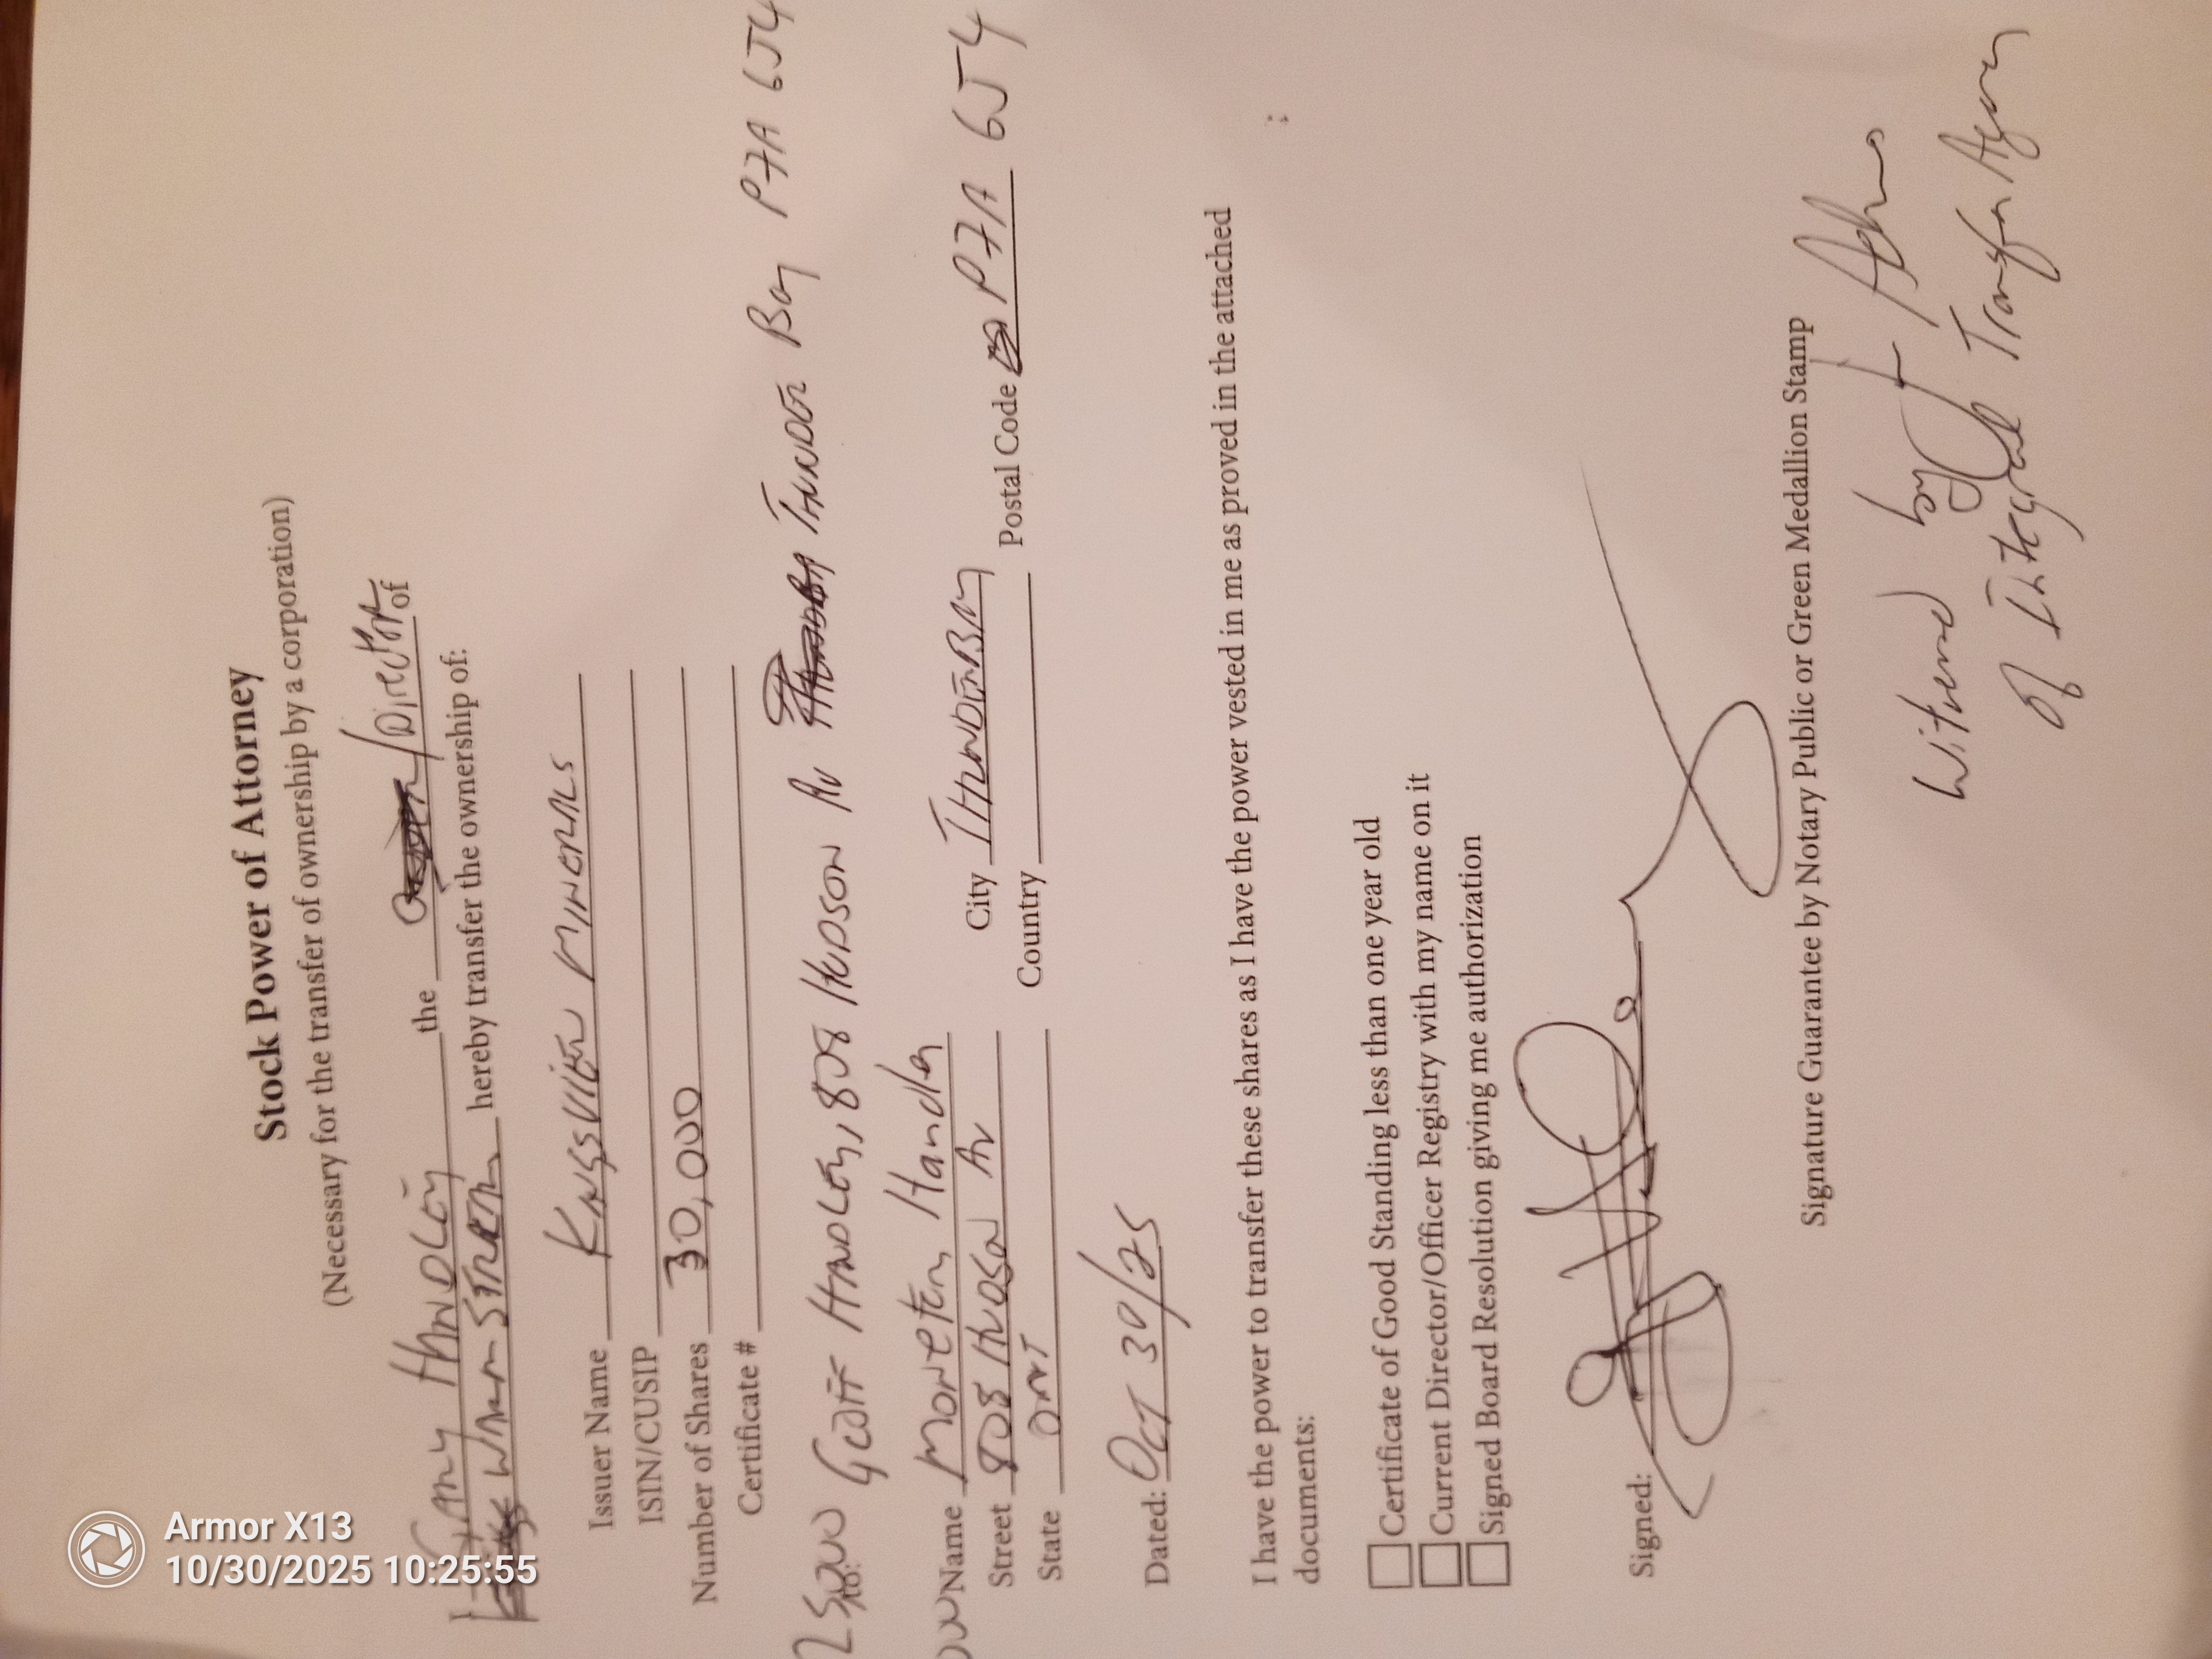 Stock Power of Attorney
(Necessary for the transfer of ownership by a corporation)
I, Gary HANDLEY the / Director of
hereby transfer the ownership of:
Issuer Name KINGSVIEW MINERALS
ISIN/CUSIP
Number of Shares 30,000
Certificate #
to:
HANDLEY, 808 HUDSON AV THUNDER Bay P7A 6J4
Name Handley
Street 808 HUDSON AV City THUNDER BAY Postal Code P7A 6J4
State ONT Country
Dated: OCT 30/25
I have the power to transfer these shares as I have the power vested in me as proved in the attached
documents:
Certificate of Good Standing less than one year old
Current Director/Officer Registry with my name on it
Signed Board Resolution giving me authorization
Signed:
Signature Guarantee by Notary Public or Green Medallion Stamp
Witnessed by
of Integral Transfer Agency
Armor X13
10/30/2025 10:25:55